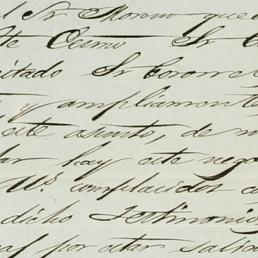 l Sr. Moreno que
Ste Ocurro Sr C
citado Sr Coronel
y ampliamente
este asunto, de m
lar hay este neg
Us complacidos
dicho Testimonio
por estar salid